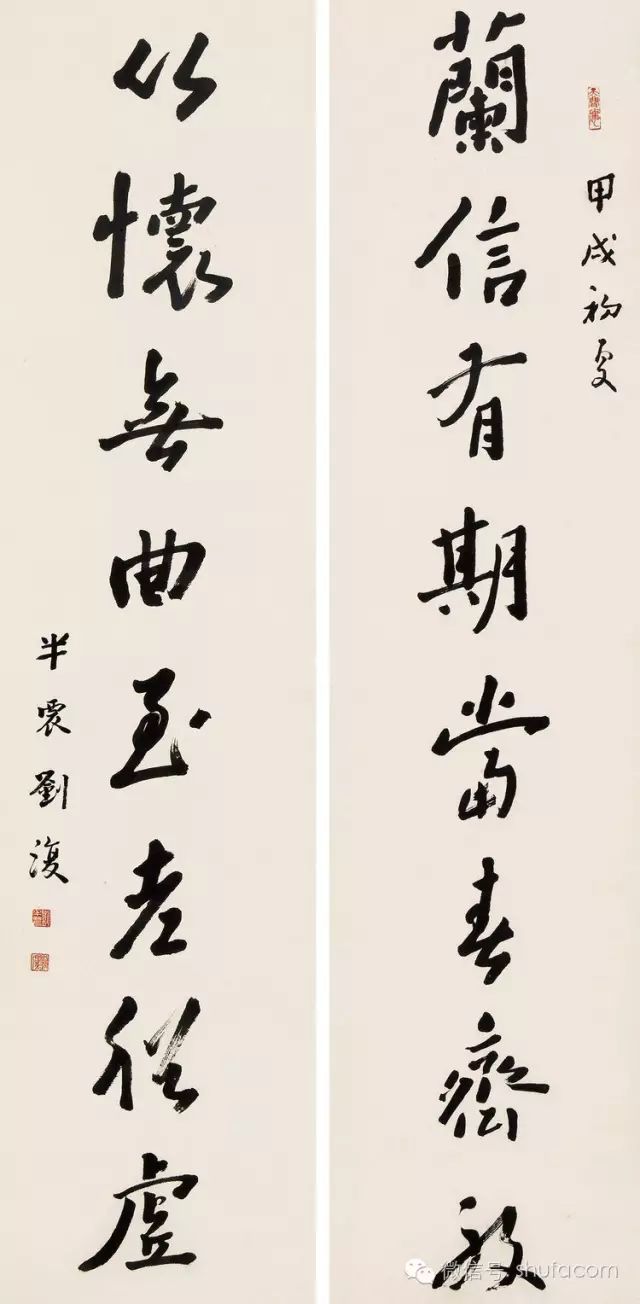 甲戌初夏
蘭信有期當春齊
竹懷無曲至老虛
半農劉復
微信号: shufacom